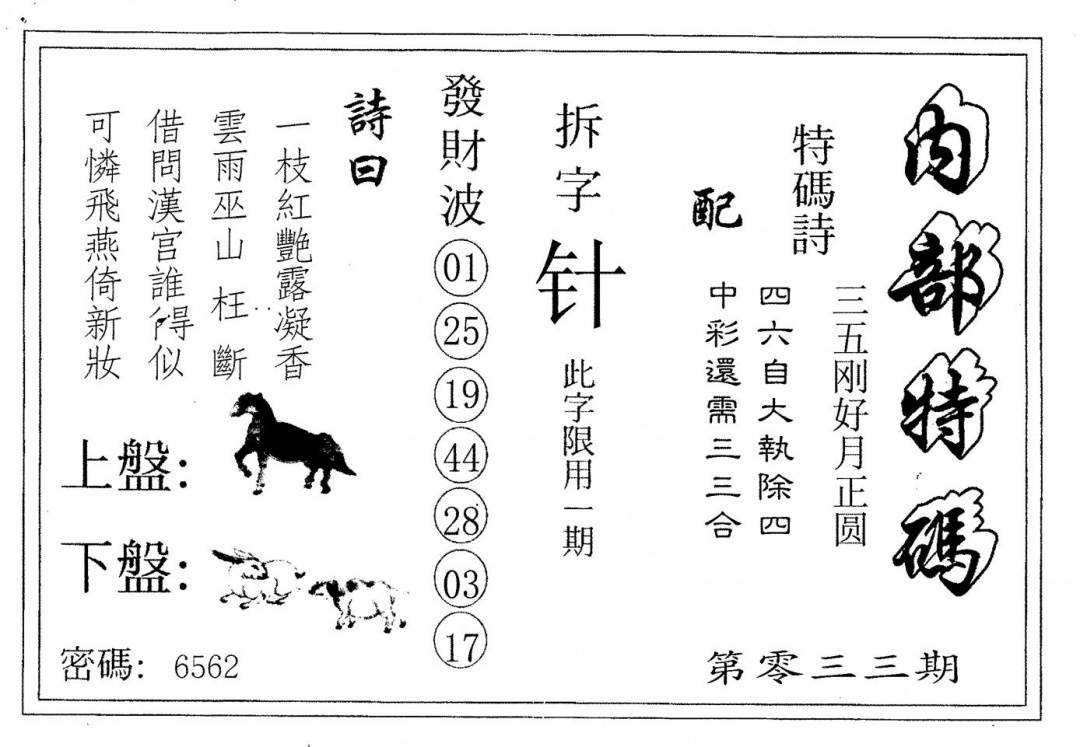 内部特碼
特碼詩
三五刚好月正圆
配
四六自大執除四
中彩還需三三合
第零三三期
拆字
针
此字限用一期
發財波
01
25
19
44
28
03
17
詩曰
一枝紅艷露凝香
雲雨巫山枉斷
借問漢宮誰得似
可憐飛燕倚新妝
上盤:
下盤:
密碼: 6562